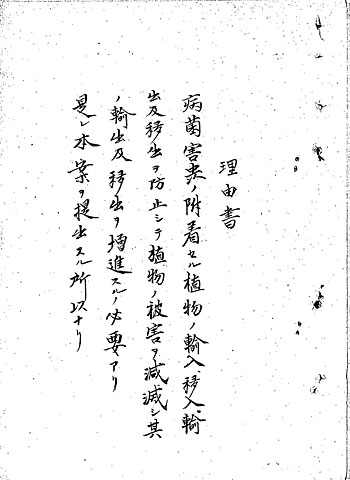 理由書
病菌害虫ノ附着セル植物ノ輸入、移入、輸
出及移出ヲ防止シテ植物ノ被害ヲ減滅シ其
ノ輸出及移出ヲ増進スルノ必要アリ
是レ本案ヲ提出スル所以ナリ